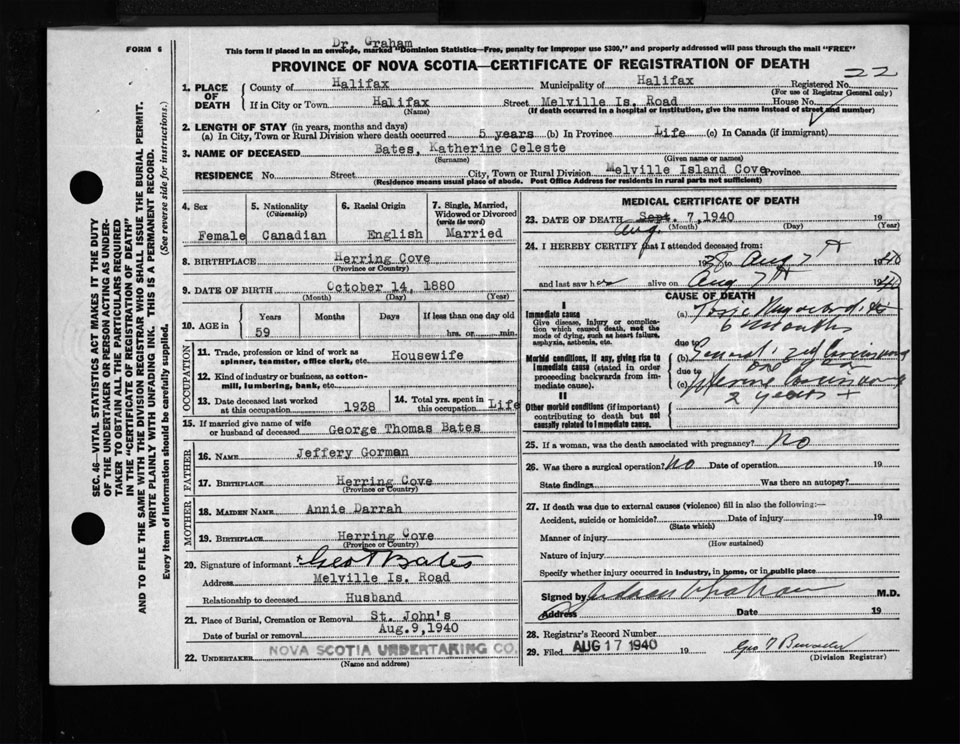 FORM 6
Dr. Graham
This form if placed in an envelope, marked "Dominion Statistics—Free, penalty for improper use $300," and properly addressed will pass through the mail "FREE"
PROVINCE OF NOVA SCOTIA—CERTIFICATE OF REGISTRATION OF DEATH
22
SEC. 46—VITAL STATISTICS ACT MAKES IT THE DUTY
OF THE UNDERTAKER OR PERSON ACTING AS UNDER-
TAKER TO OBTAIN ALL THE PARTICULARS REQUIRED
IN THE "CERTIFICATE OF REGISTRATION OF DEATH"
AND TO FILE THE SAME WITH THE DIVISION REGISTRAR WHO SHALL ISSUE THE BURIAL PERMIT.
WRITE PLAINLY WITH UNFADING INK. THIS IS A PERMANENT RECORD.
Every item of information should be carefully supplied. (See reverse side for instructions.)
1. PLACE OF DEATH
County of Halifax Municipality of Halifax Registered No.
(For use of Registrar General only)
If in City or Town Halifax Street Melville Is. Road House No.
(Name) (If death occurred in a hospital or institution, give the name instead of street and number)
2. LENGTH OF STAY (in years, months and days)
(a) In City, Town or Rural Division where death occurred 5 years (b) In Province Life (c) In Canada (if immigrant)
3. NAME OF DECEASED Bates, Katherine Celeste
(Surname) (Given name or names)
RESIDENCE No. Street City, Town or Rural Division Melville Island Cove Province
(Residence means usual place of abode. Post Office Address for residents in rural parts not sufficient)
4. Sex 5. Nationality (Citizenship) 6. Racial Origin 7. Single, Married, Widowed or Divorced (write the word)
Female Canadian English Married
8. BIRTHPLACE Herring Cove
(Province or Country)
9. DATE OF BIRTH October 14, 1880
(Month) (Day) (Year)
10. AGE in Years Months Days If less than one day old
59 hrs. or min.
OCCUPATION
11. Trade, profession or kind of work as spinner, teamster, office clerk, etc. Housewife
12. Kind of industry or business, as cotton-mill, lumbering, bank, etc.
13. Date deceased last worked at this occupation 1938 14. Total yrs. spent in this occupation Life
15. If married give name of wife or husband of deceased George Thomas Bates
FATHER
16. NAME Jeffery Gorman
17. BIRTHPLACE Herring Cove
(Province or Country)
MOTHER
18. MAIDEN NAME Annie Darrah
19. BIRTHPLACE Herring Cove
(Province or Country)
20. Signature of informant + Geo T Bates
Address Melville Is. Road
Relationship to deceased Husband
21. Place of Burial, Cremation or Removal St. John's
Date of burial or removal Aug. 9, 1940
22. UNDERTAKER NOVA SCOTIA UNDERTAKING CO.
(Name and address)
MEDICAL CERTIFICATE OF DEATH
23. DATE OF DEATH Sept. 7, 1940 19
Aug. (Month) (Day) (Year)
24. I HEREBY CERTIFY that I attended deceased from:
1938 to Aug 7th 1940
and last saw her alive on Aug 7th 1940
CAUSE OF DEATH
I
Immediate cause
Give disease, injury or complication which caused death, not the mode of dying, such as heart failure, asphyxia, asthenia, etc.
(a) Toxic Myocarditis
6 months
due to
Morbid conditions, if any, giving rise to immediate cause (stated in order proceeding backwards from immediate cause).
(b)
due to
(c)
2 years +
II
Other morbid conditions (if important) contributing to death but not causally related to immediate cause.
25. If a woman, was the death associated with pregnancy? No
26. Was there a surgical operation? No Date of operation 19
State findings Was there an autopsy?
27. If death was due to external causes (violence) fill in also the following:—
Accident, suicide or homicide? Date of injury 19
(State which)
Manner of injury
(How sustained)
Nature of injury
Specify whether injury occurred in industry, in home, or in public place
Signed by Graham M.D.
Address Date 19
28. Registrar's Record Number
29. Filed AUG 17 1940 19
(Division Registrar)